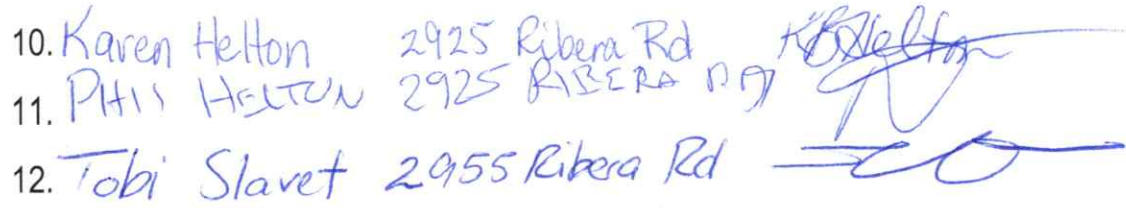 10. Karen Helton 2925 Ribera Rd KBHelton
11. HELTON 2925 RIBERA RD
12. Tobi Slavet 2955 Ribera Rd